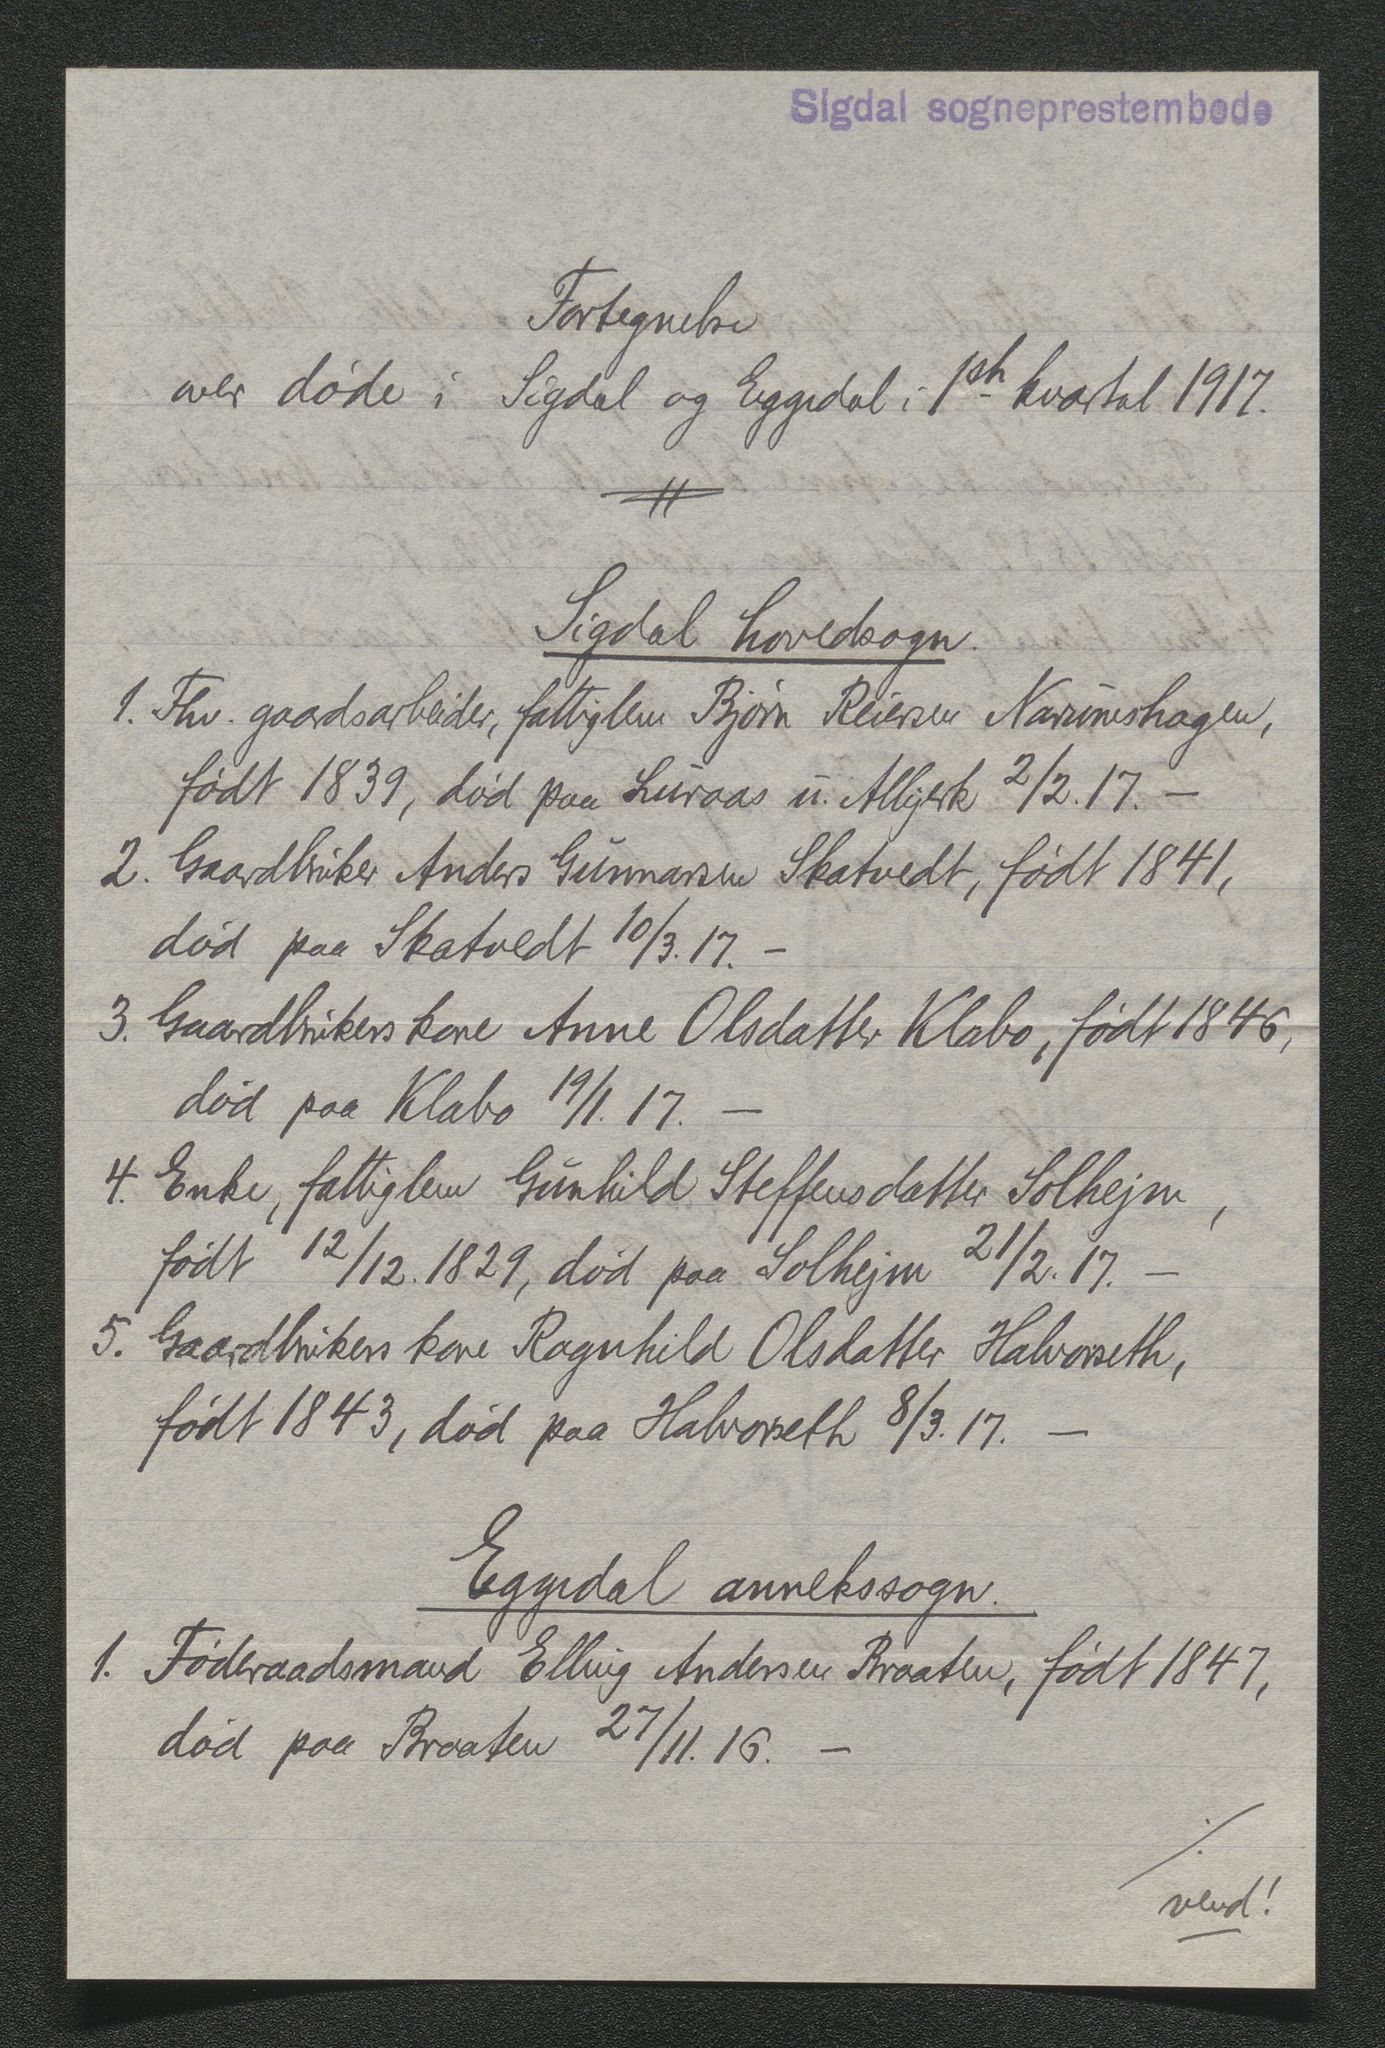 Sigdal sogneprestembede
Fortegnelse
over døde i Sigdal og Eggedal i 1ste kvartal 1917.
Sigdal hovedsogn.
1. Fhv. gaardsarbeider, fattiglem Bjørn Reiersen Narumshagen,
født 1839, død paa Luraas u. Albjerk 2/2. 17. —
2. Gaardbruker Anders Gunnarsen Skatvedt, født 1841,
død paa Skatvedt 10/3. 17. —
3. Gaardbrukers kone Anne Olsdatter Klabo, født 1846,
død paa Klabo 19/1. 17. —
4. Enke, fattiglem Gunhild Steffensdatter Solhejm,
født 12/12. 1829, død paa Solhejm 21/2. 17. —
5. Gaardbrukers kone Ragnhild Olsdatter Halvorseth,
født 1843, død paa Halvorseth 8/3. 17. —
Eggedal annekssogn.
1. Føderaadsmand Elling Andersen Braaten, født 1847,
død paa Braaten 27/11. 16. —
./.
vend!